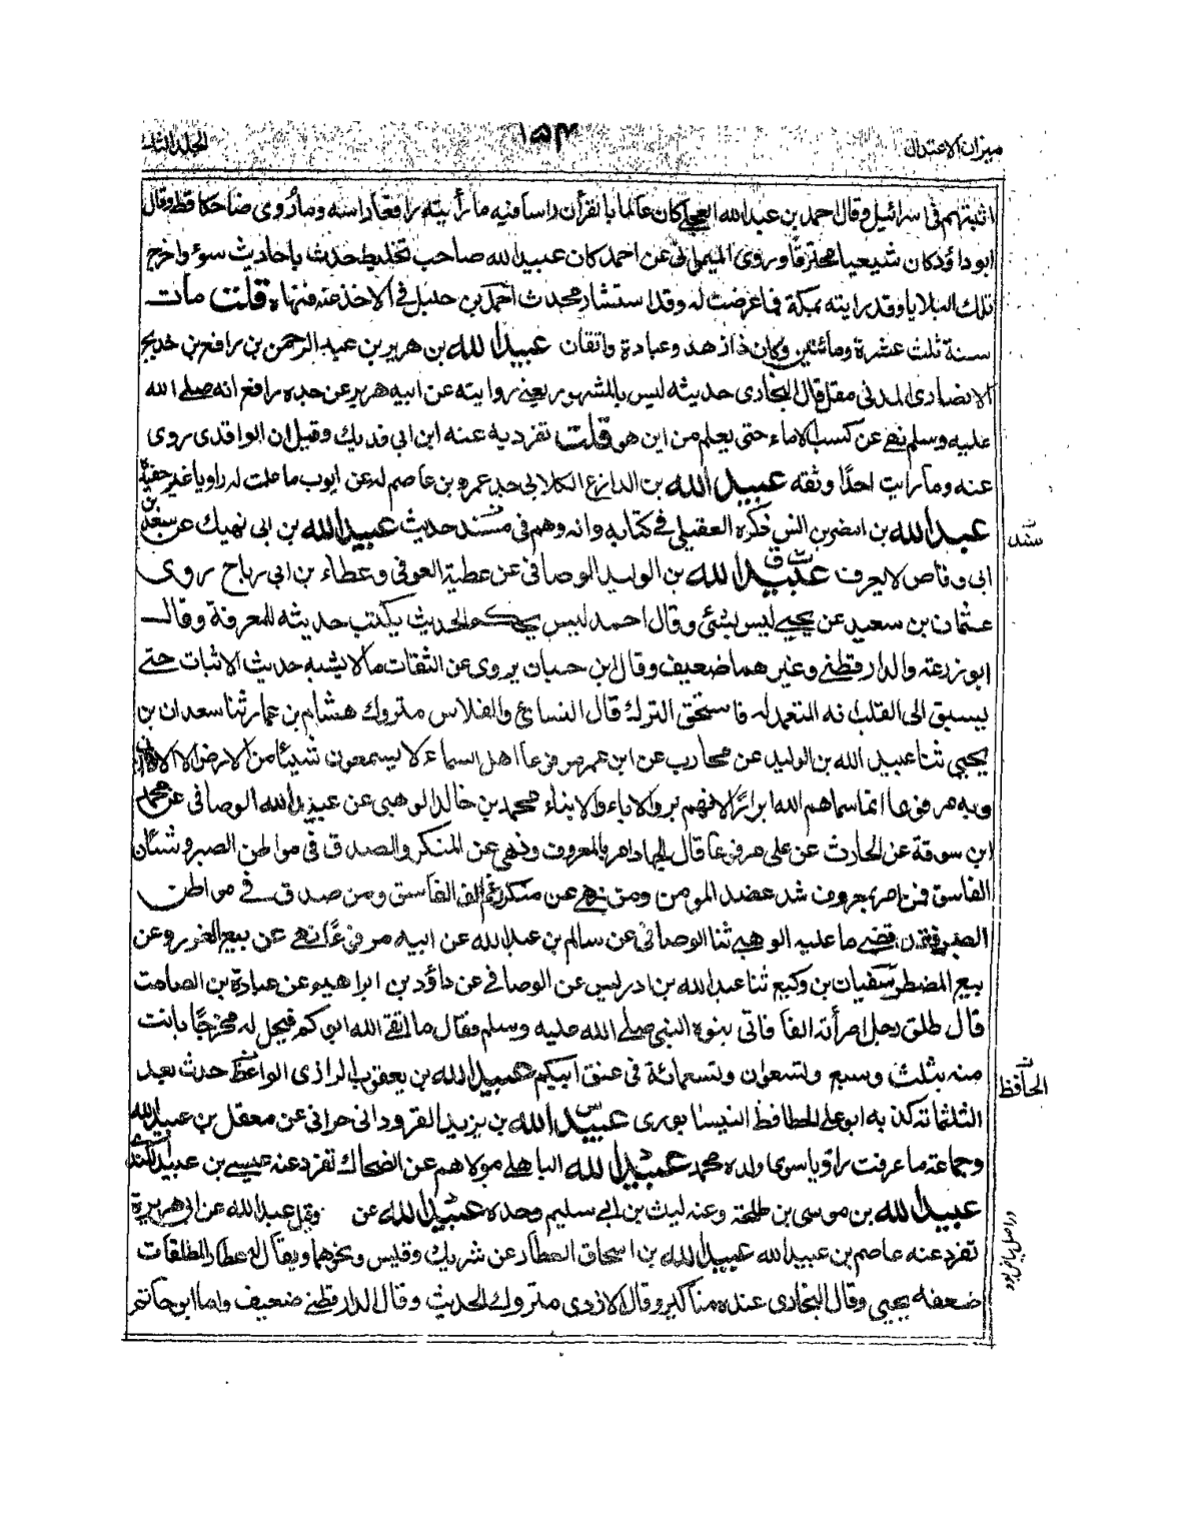 ميزان الاعتدال
١٥٣
الجلد الثالث
اثبتهم فى اسرائيل وقال احمد بن عبد الله العجلى كان عالما بالقرأن راسا فيه ما رأيته رافعا راسه وما رُوى ضاحكا قط وقال
ابو داؤد كان شيعيا محترقا وروى الميمونى عن احمد كان عبيد الله صاحب تخليط حدث باحاديث سوء واخرج
تلك البلايا وقد رايته بمكة فما عرضت له وقد استشار محدث احمد بن حنبل فى الاخذ عنه فنهاه قلت مات
سنة ثلث عشرة ومائتين وكان ذا زهد وعبادة واتقان عبيد الله بن هرير بن عبد الرحمن بن رافع بن خديج
الانصارى المدنى مقل قال البخارى حديثه ليس بالمشهور يعنى روايته عن ابيه هرير عن جده رافع انه صلے الله
عليه وسلم نهے عن كسب الاماء حتى يعلم من اين هو قلت تفرد به عنه ابن ابى فديك وقيل ان الواقدى روى
عنه وما رايت احدًا وثقه عبيد الله بن الوازع الكلابى جد عمرو بن عاصم له عن ايوب ما علمت له راويا غير حفيده
عبد الله بن النضر بن انس ذكره العقيلى فى كتابه وانه وهم فى مسند حديث عبيد الله بن ابى نهيك عن سعد بن
ابى وقاص لا يعرف عبيد الله بن الوليد الوصافى عن عطية العوفى وعطاء بن ابى رباح روى
عثمان بن سعيد عن يحيے ليس بشئى وقال احمد ليس بمحكم الحديث يكتب حديثه للمعرفة وقال
ابو زرعة والدارقطنے وغيرهما ضعيف وقال ابن حبان يروى عن الثقات ما لا يشبه حديث الاثبات حتے
يسبق الى القلب انه المتعمد له فاستحق الترك قال النسائى والفلاس متروك هشام بن عمار ثنا سعدان بن
يحيى ثنا عبيد الله بن الوليد عن محارب عن ابن عمر مرفوعا اهل السماء لا يسمعون شيئا من الارض الا الاذان
وبه مرفوعا انما سماهم الله ابرارًا لانهم بروا الاباء والابناء محمد بن خالد الوهبى عن عبيد الله الوصافى عن محمد
ابن سوقة عن الحارث عن على مرفوعا قال الجهاد امر بالمعروف ونهى عن المنكر والصدق فى مواطن الصبر وشنأن
الفاسق فمن امر بمعروف شد عضد المومن ومن نهے عن منكر ارغم انف الفاسق ومن صدق فى مواطن
الصبر فقد قضے ما عليه الوهبے ثنا الوصافى عن سالم بن عبد الله عن ابيه مرفوعًا نهے عن بيع الغرر وعن
بيع المضطر سفيان بن وكيع ثنا عبد الله بن ادريس عن الوصافى عن داؤد بن ابراهيم عن عبادة بن الصامت
قال طلق رجل امرأته الفا فاتى بنوه النبى صلے الله عليه وسلم فقال ما اتقى الله ابوكم فيجعل له مخرجًا بانت
منه بثلث وسبع وتسعون وتسعمائة فى عنق ابيكم عبيد الله بن يعقوب الرازى الواعظ حدث بعد
الحافظ
الثلثمائة كذبه ابو على الحافظ النيسابورى عبيد الله بن يزيد القردوانى حرانى عن معقل بن عبيد الله
وجماعة ما عرفت راويا سوى ولده محمد عبيد الله الباهلے مولاهم عن الضحاك تفرد عنه عيسے بن عبيد الكندى
عبيد الله بن موسى بن طلحة وعنه ليث بن ابى سليم وحده عبيد الله عن وقيل عبد الله عن ابى هريرة
تفرد عنه عاصم بن عبيد الله عبيد الله بن اسحاق العطار عن شريك وقيس ونحوهما ويقال له عطار المطلقات
ضعفه يحيى وقال البخارى عنده مناكير وقال الازدى متروك الحديث وقال الدارقطنے ضعيف واما ابو حاتم
در اصل بياض بود